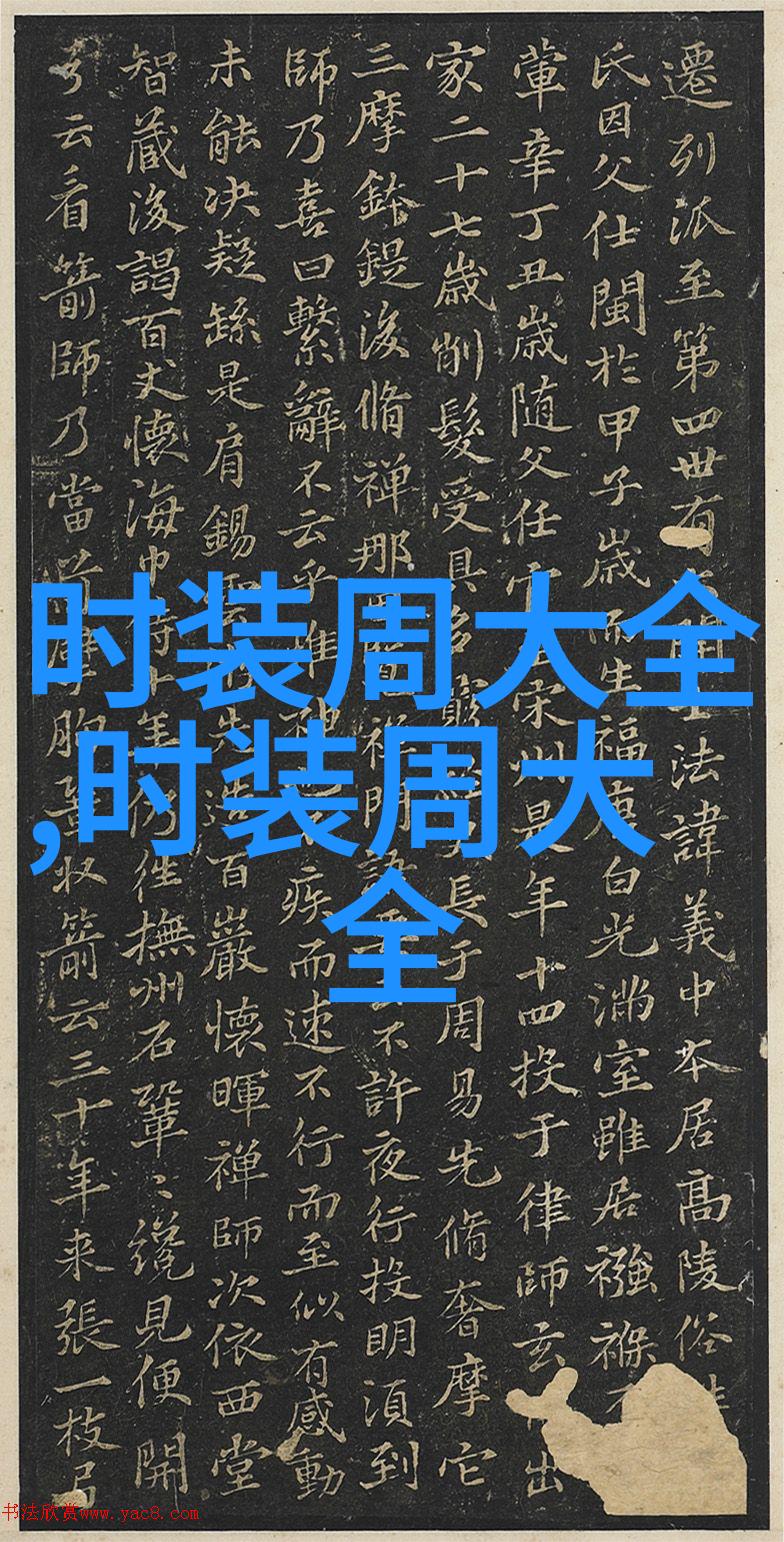 遷列派至第四世有
法諱義中本居高陵俗
氏因父仕閩於甲子歲而生福唐白光滿室雖居襁褓
葷辛丁丑歲随父任
宋州是年十四投于律師玄
出
家二十七歲削髮受具
長于周易先脩奢摩它
三摩鉢鍉後脩禅那
不許夜行投明湏到
師乃喜曰繫辭不云乎惟
疾而速不行而至似有感動
未能决疑繇是肩錫
先造百巖懷暉禅師次依西堂
智蔵後謁百丈懷海
十年
往撫州石鞏〻纔見便開
弓云看箭師乃當
胸
收箭云三十年来張一枝弓
时装周大全
,时装周大
全
书法欣赏www.yac8.com